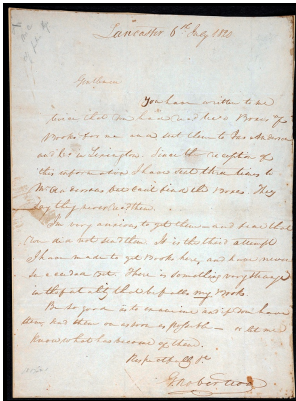 Lancaster 6th July 1824
Gentlemen
You have written to me
that you had two Boxes of
Books for me and sent them to Jas Anderson
and Co in Lexington. Since the reception of
this information I have sent three times to
but can't find the Boxes. They
say they never had them.
I'm very anxious to get them and fear that
you did not send them. It is the third attempt
I have made to get Books here, and have never
succeeded yet. There is something very strange
in the fatality that befalls my Books.
Be so good as to examine and if you have
them, send them on as soon as possible or let me
know what has become of them.
Respectfully &c
Robertson